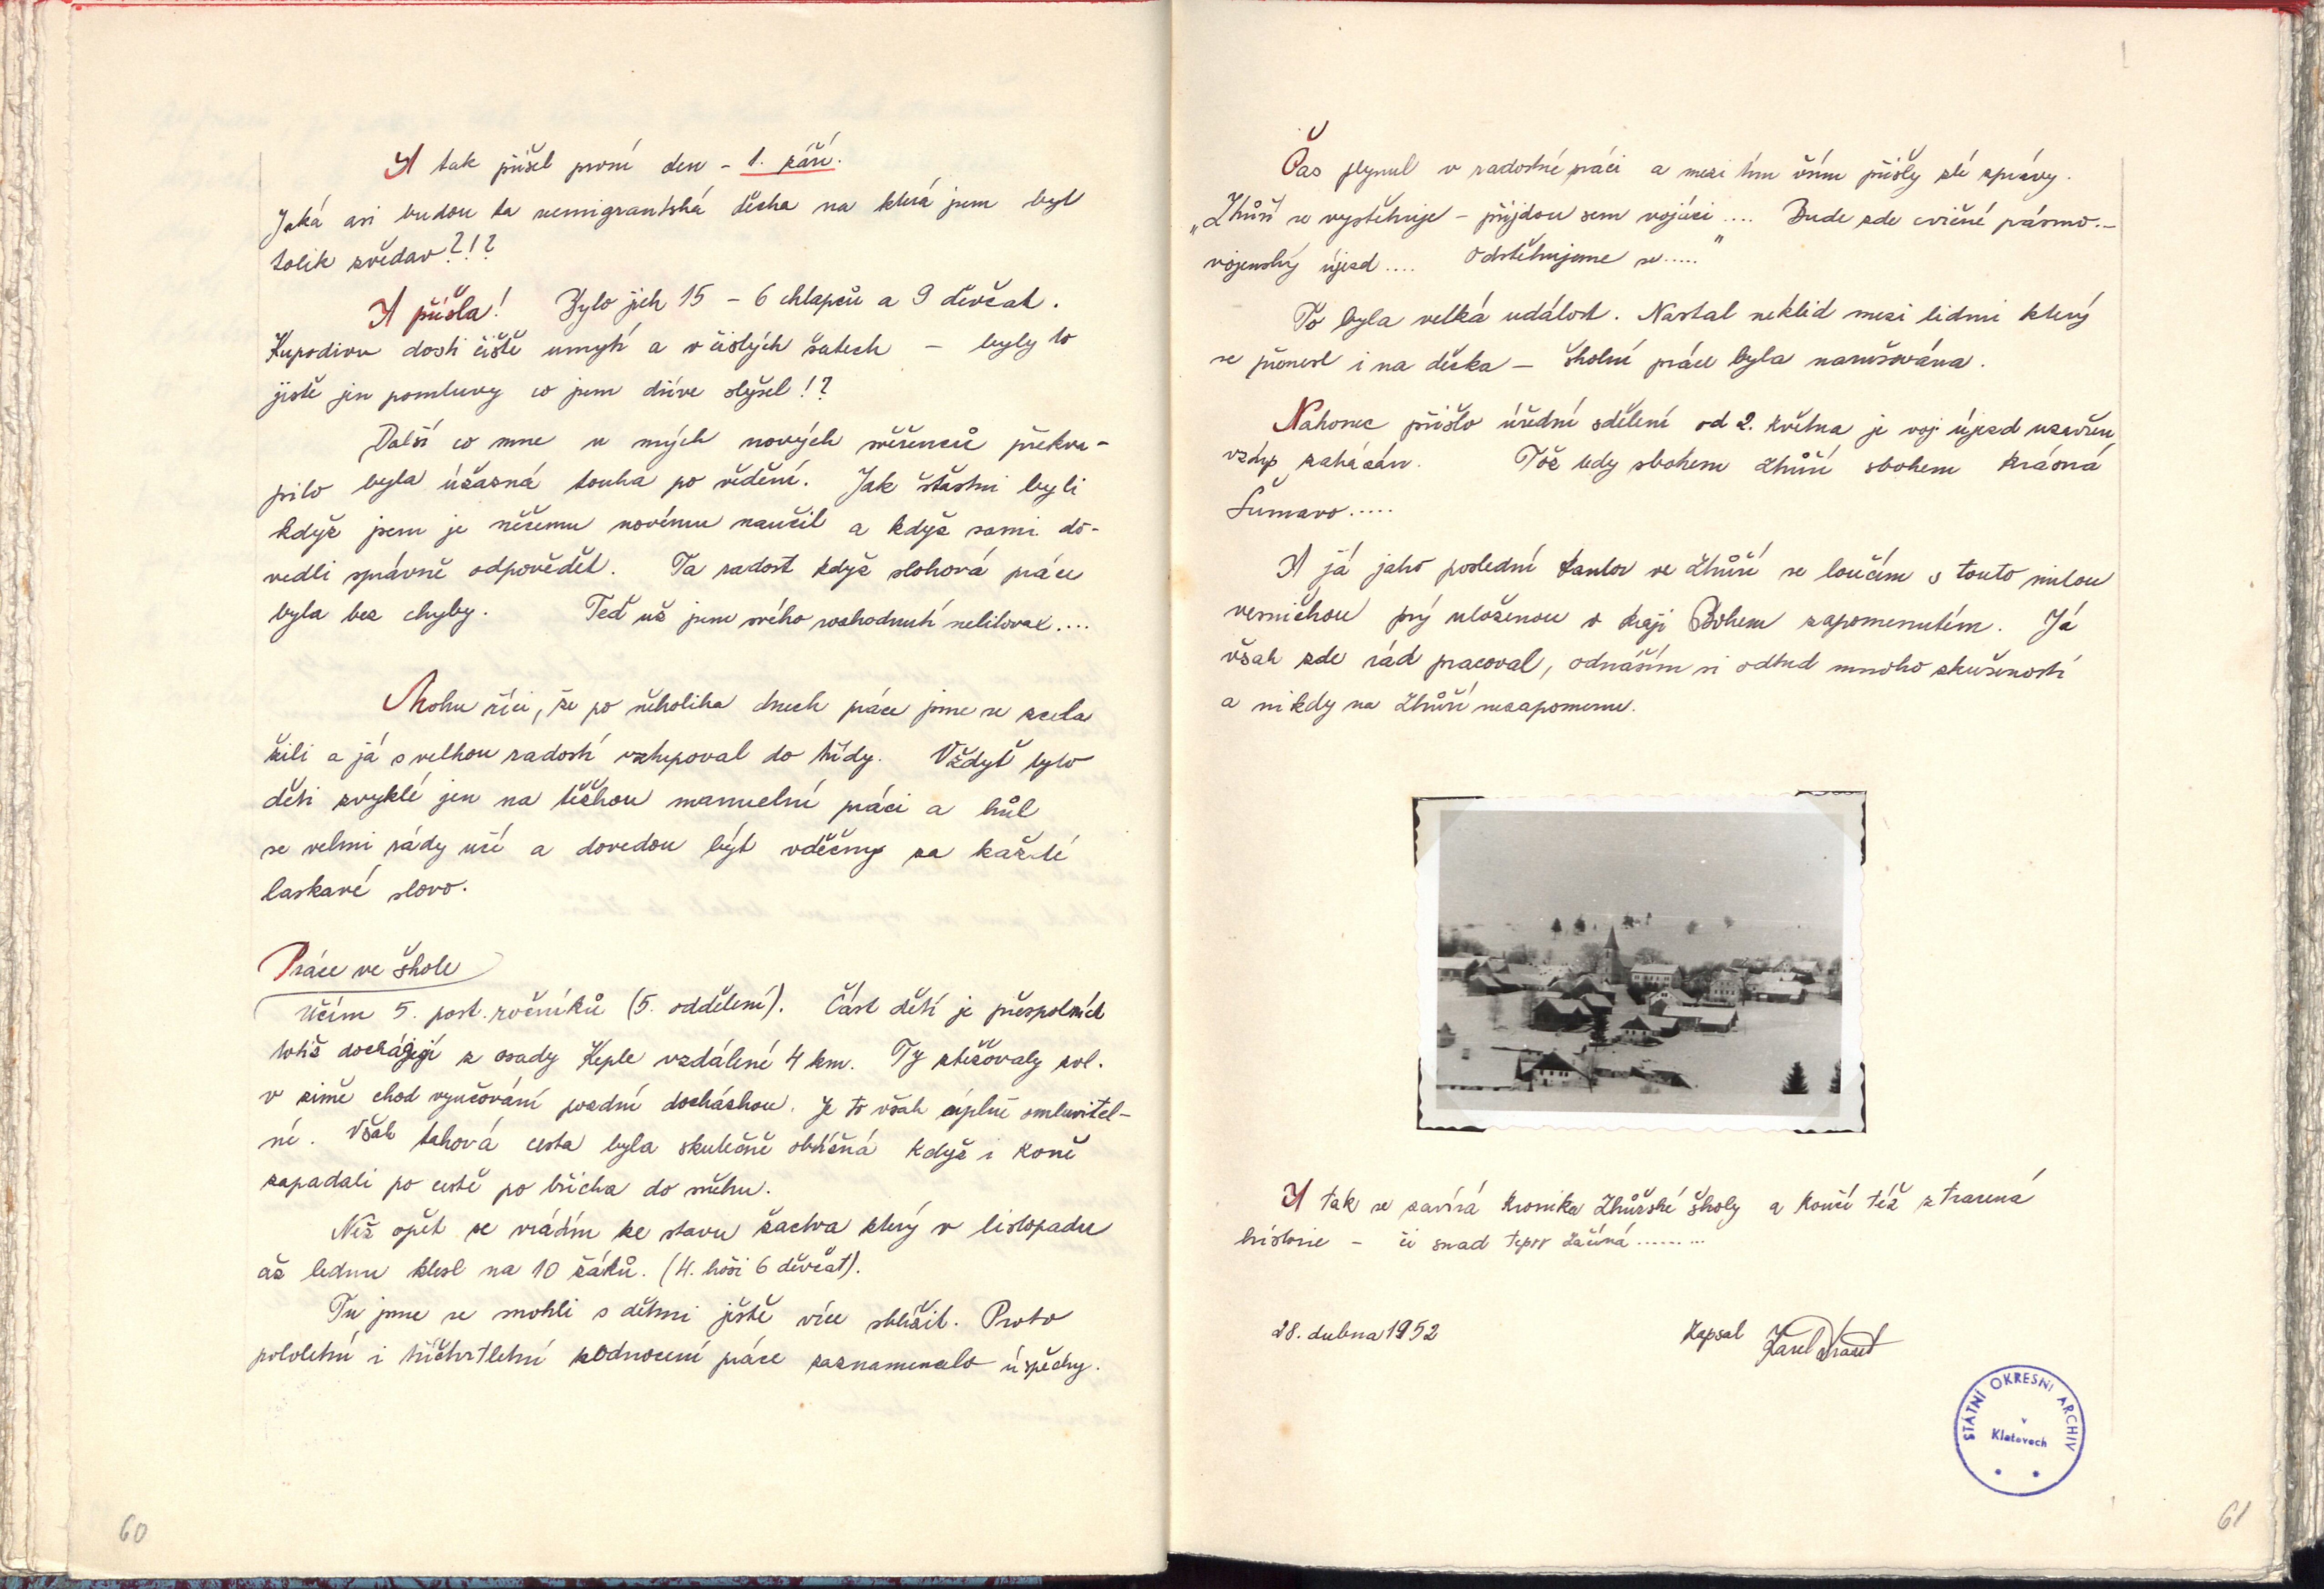 A tak přišel první den – 1. září.
Jaká asi budou ta reemigrantská děcka na která jsem byl
tolik zvědav?!?
A přišla! Bylo jich 15 – 6 chlapců a 9 děvčat.
Kupodivu dosti čistě umytí a v čistých šatech – byly to
jistě jen pomluvy co jsem dříve slyšel!?
Další co mne u mých nových svěřenců překva-
pilo byla úžasná touha po vědění. Jak šťastni byli
když jsem je něčemu novému naučil a když sami do-
vedli správně odpovědět. Ta radost když slohová práce
byla bez chyby. Teď už jsem svého rozhodnutí nelitoval....
Mohu říci, že po několika dnech práce jsme se zcela
žili a já s velkou radostí vstupoval do třídy. Vždyť tyto
děti zvyklé jen na těžkou manuelní práci a hůl
se velmi rády učí a dovedou být vděčny za každé
laskavé slovo.
Práce ve škole
Učím 5. post. ročníků (5. oddělení). Část dětí je přespolních
totiž docházejí z osady Keple vzdálené 4 km. Ty ztěžovaly zvl.
v zimě chod vyučování pozdní docházkou. Je to však úplně omluvitel-
né. Však taková cesta byla skutečně obtížná když i koně
zapadali po cestě po břicha do sněhu.
Než opět se vrátím ke stavu žactva který v listopadu
až lednu klesl na 10 žáků. (4. hoši 6 děvčat).
Tu jsme se mohli s dětmi ještě více sblížit. Proto
pololetní i tříčtvrtletní hodnocení práce zaznamenalo úspěchy.
60
Čas plynul v radostné práci a mezi tím vším přišly zlé zprávy.
„Zhůří se vystěhuje – přijdou sem vojáci.... Bude zde cvičné pásmo.–
vojenský újezd.... Odstěhujeme se....."
To byla velká událost. Nastal neklid mezi lidmi který
se přenesl i na děcka – školní práce byla narušována.
Nakonec přišlo úřední sdělení od 2. května je voj. újezd uzavřen,
vstup zakázán. Tož tedy sbohem Zhůří sbohem krásná
Šumavo.....
A já jako poslední kantor ve Zhůří se loučím s touto milou
vesničkou prý uloženou v kraji Bohem zapomenutém. Já
však zde rád pracoval, odnáším si odtud mnoho zkušeností
a nikdy na Zhůří nezapomenu.
A tak se zavírá kronika Zhůřské školy a končí též ztracená
historie – či snad teprv začíná.........
28. dubna 1952 Zapsal Karel
STÁTNÍ OKRESNÍ ARCHIV
v
Klatovech
61